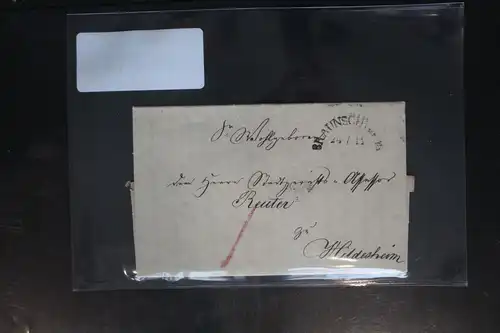 Sr Wohlgeboren
BRAUNSCHWEIG
24 / 11
dem Herrn Stadtgerichts-Assessor
Reuter
zu
Hildesheim